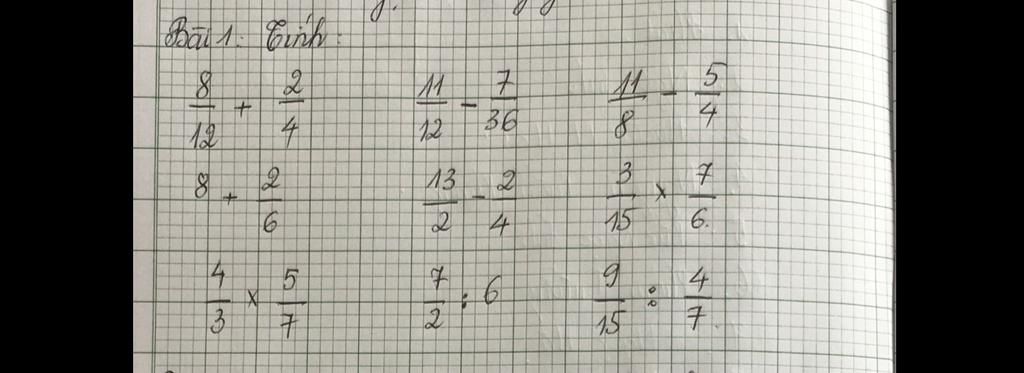 Bài 1: Tính:
8/12 + 2/4    11/12 - 7/36    11/8 - 5/4
8 + 2/6    13/2 - 2/4    3/15 x 7/6
4/3 x 5/7    7/2 : 6    9/15 : 4/7